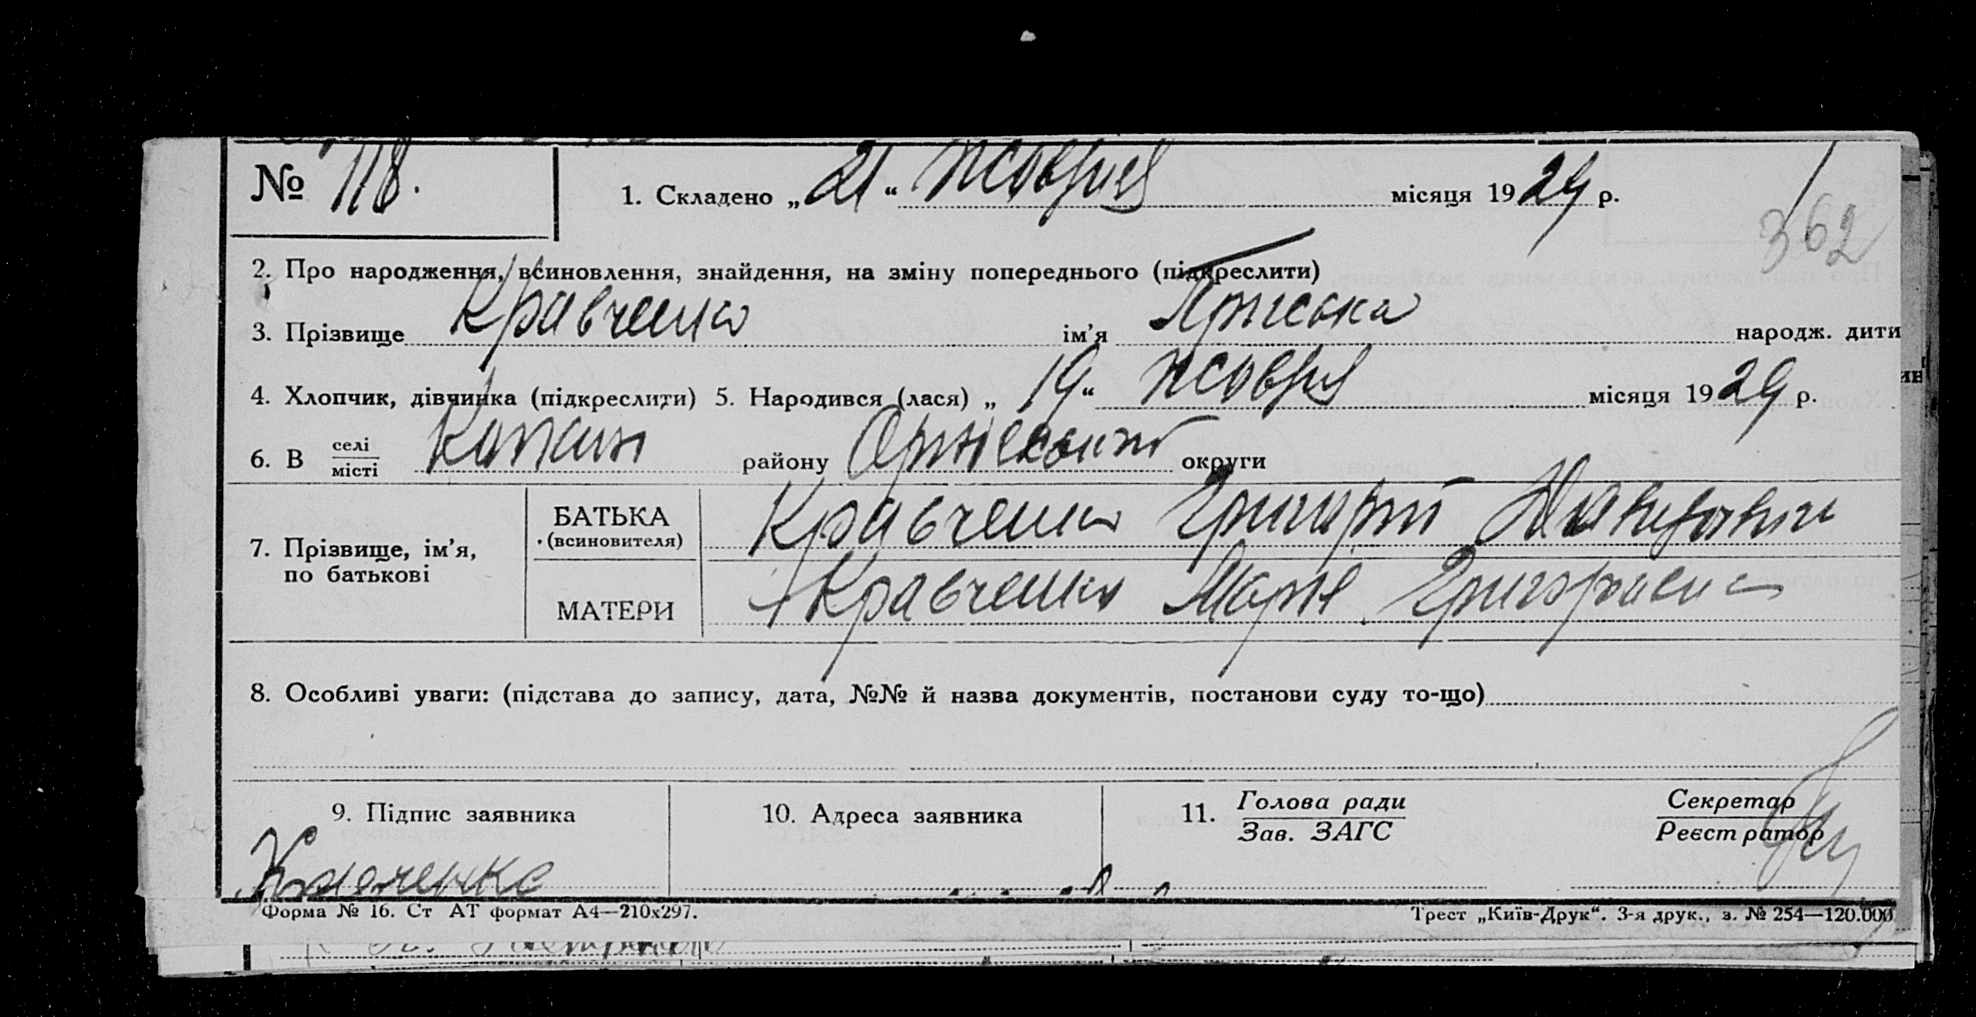 № 118.
1. Складено „21“ жовтня місяця 1929 р.
362
2. Про народження, всиновлення, знайдення, на зміну попереднього (підкреслити)
3. Прізвище Кравченко ім’я Пріська народж. дити
4. Хлопчик, дівчинка (підкреслити) 5. Народився (лася) „19“ жовтня місяця 1929 р.
6. В селі місті району округи
7. Прізвище, ім’я, по батькові
БАТЬКА (всиновителя) Кравченко Григорій
МАТЕРИ Кравченко Марія
8. Особливі уваги: (підстава до запису, дата, №№ й назва документів, постанови суду то-що)
9. Підпис заявника 10. Адреса заявника 11. Голова ради Зав. ЗАГС Секретар Реєстратор
Кравченко
Форма № 16. Ст АТ формат А4—210х297. Трест „Київ-Друк“. 3-я друк., з. № 254—120.000